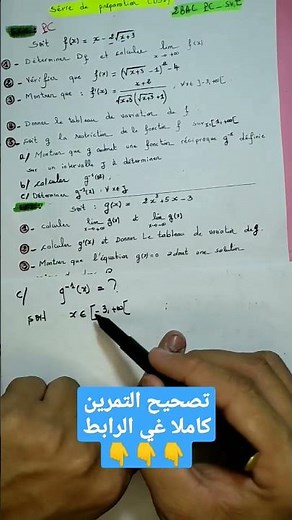 Série de préparation
2BAC PC - SVT
Soit f(x) = x - 2√(x+3)
① - Déterminer Df et calculer lim f(x) x → +∞
② - Vérifier que f(x) = (√(x+3) - 1)² - 4
③ - Montrer que : f'(x) = (x+2) / (√(x+3)(√(x+3)+1)) , ∀x ∈ ]-3,+∞[
④ - Donner le tableau de variation de f
⑤ - Soit g la restriction de la fonction f sur
a/ Montrer que g admet une fonction réciproque g⁻¹ définie
sur un intervalle J à déterminer
b/ calculer g⁻¹
c/ Déterminer g⁻¹(x) , ∀x∈J
Soit : g(x) = 2x³ + 5x - 3
① - calculer lim g(x) x→+∞ et lim g(x) x→-∞
② - calculer g'(x) et Donner le tableau de variation de g.
③ - Montrer que l'équation g(x)=0 admet une solution
c/ g⁻¹(x) = ?
Soit x ∈ [-3, +∞[
تصحيح التمرين
كاملا غي الرابط
👇👇👇